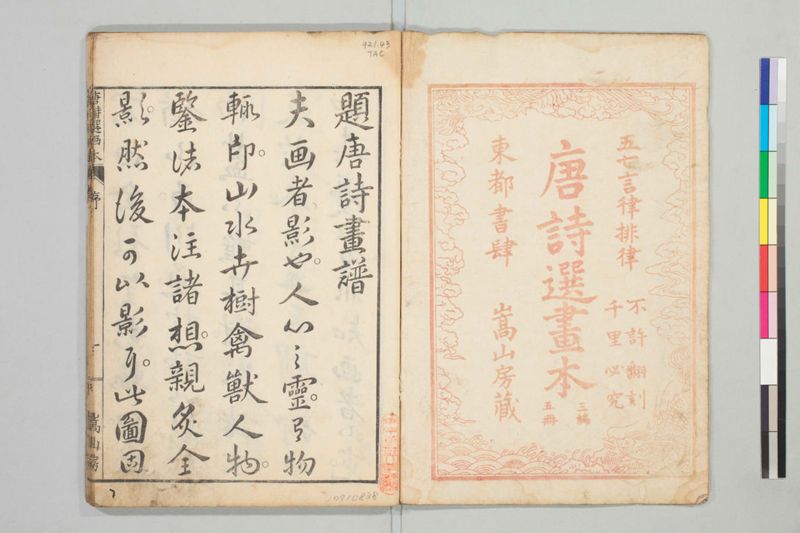 五七言律排律
不許翻刻
千里必究
唐詩選畫本
三編
五冊
東都書肆
嵩山房藏
921.43
TAC
題唐詩畫譜
夫画者影也。人心之靈。与物
輙印。山水卉樹禽獸人物。
鑒諸本注諸想。親炙全
影。然後可以影耳。此圖固
唐詩選画本
序
嵩山房
10910838